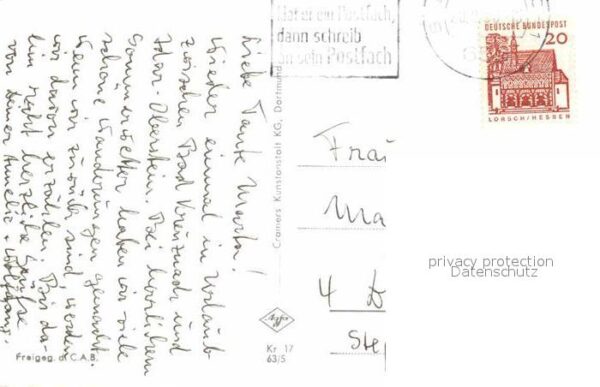 Liebe Tante Marta!
Wieder einmal in Urlaub
zwischen Bad Kreuznach und
Idar-Oberstein. Bei herrlichem
Sommerwetter haben wir viele
schöne Wanderungen gemacht.
Wenn wir zurück sind, werden
wir davon erzählen. Bis da-
hin recht herzliche Grüße
von Deiner Amelie + Wolfgang.
Freigeg. d. C.A.B.
Cramers Kunstanstalt KG, Dortmund
Agfa
Kr 17
63/5
Hat er ein Postfach,
dann schreib
an sein Postfach
DEUTSCHE BUNDESPOST
20
LORSCH/HESSEN
Frau
Ma
4 D
Ste
privacy protection
Datenschutz